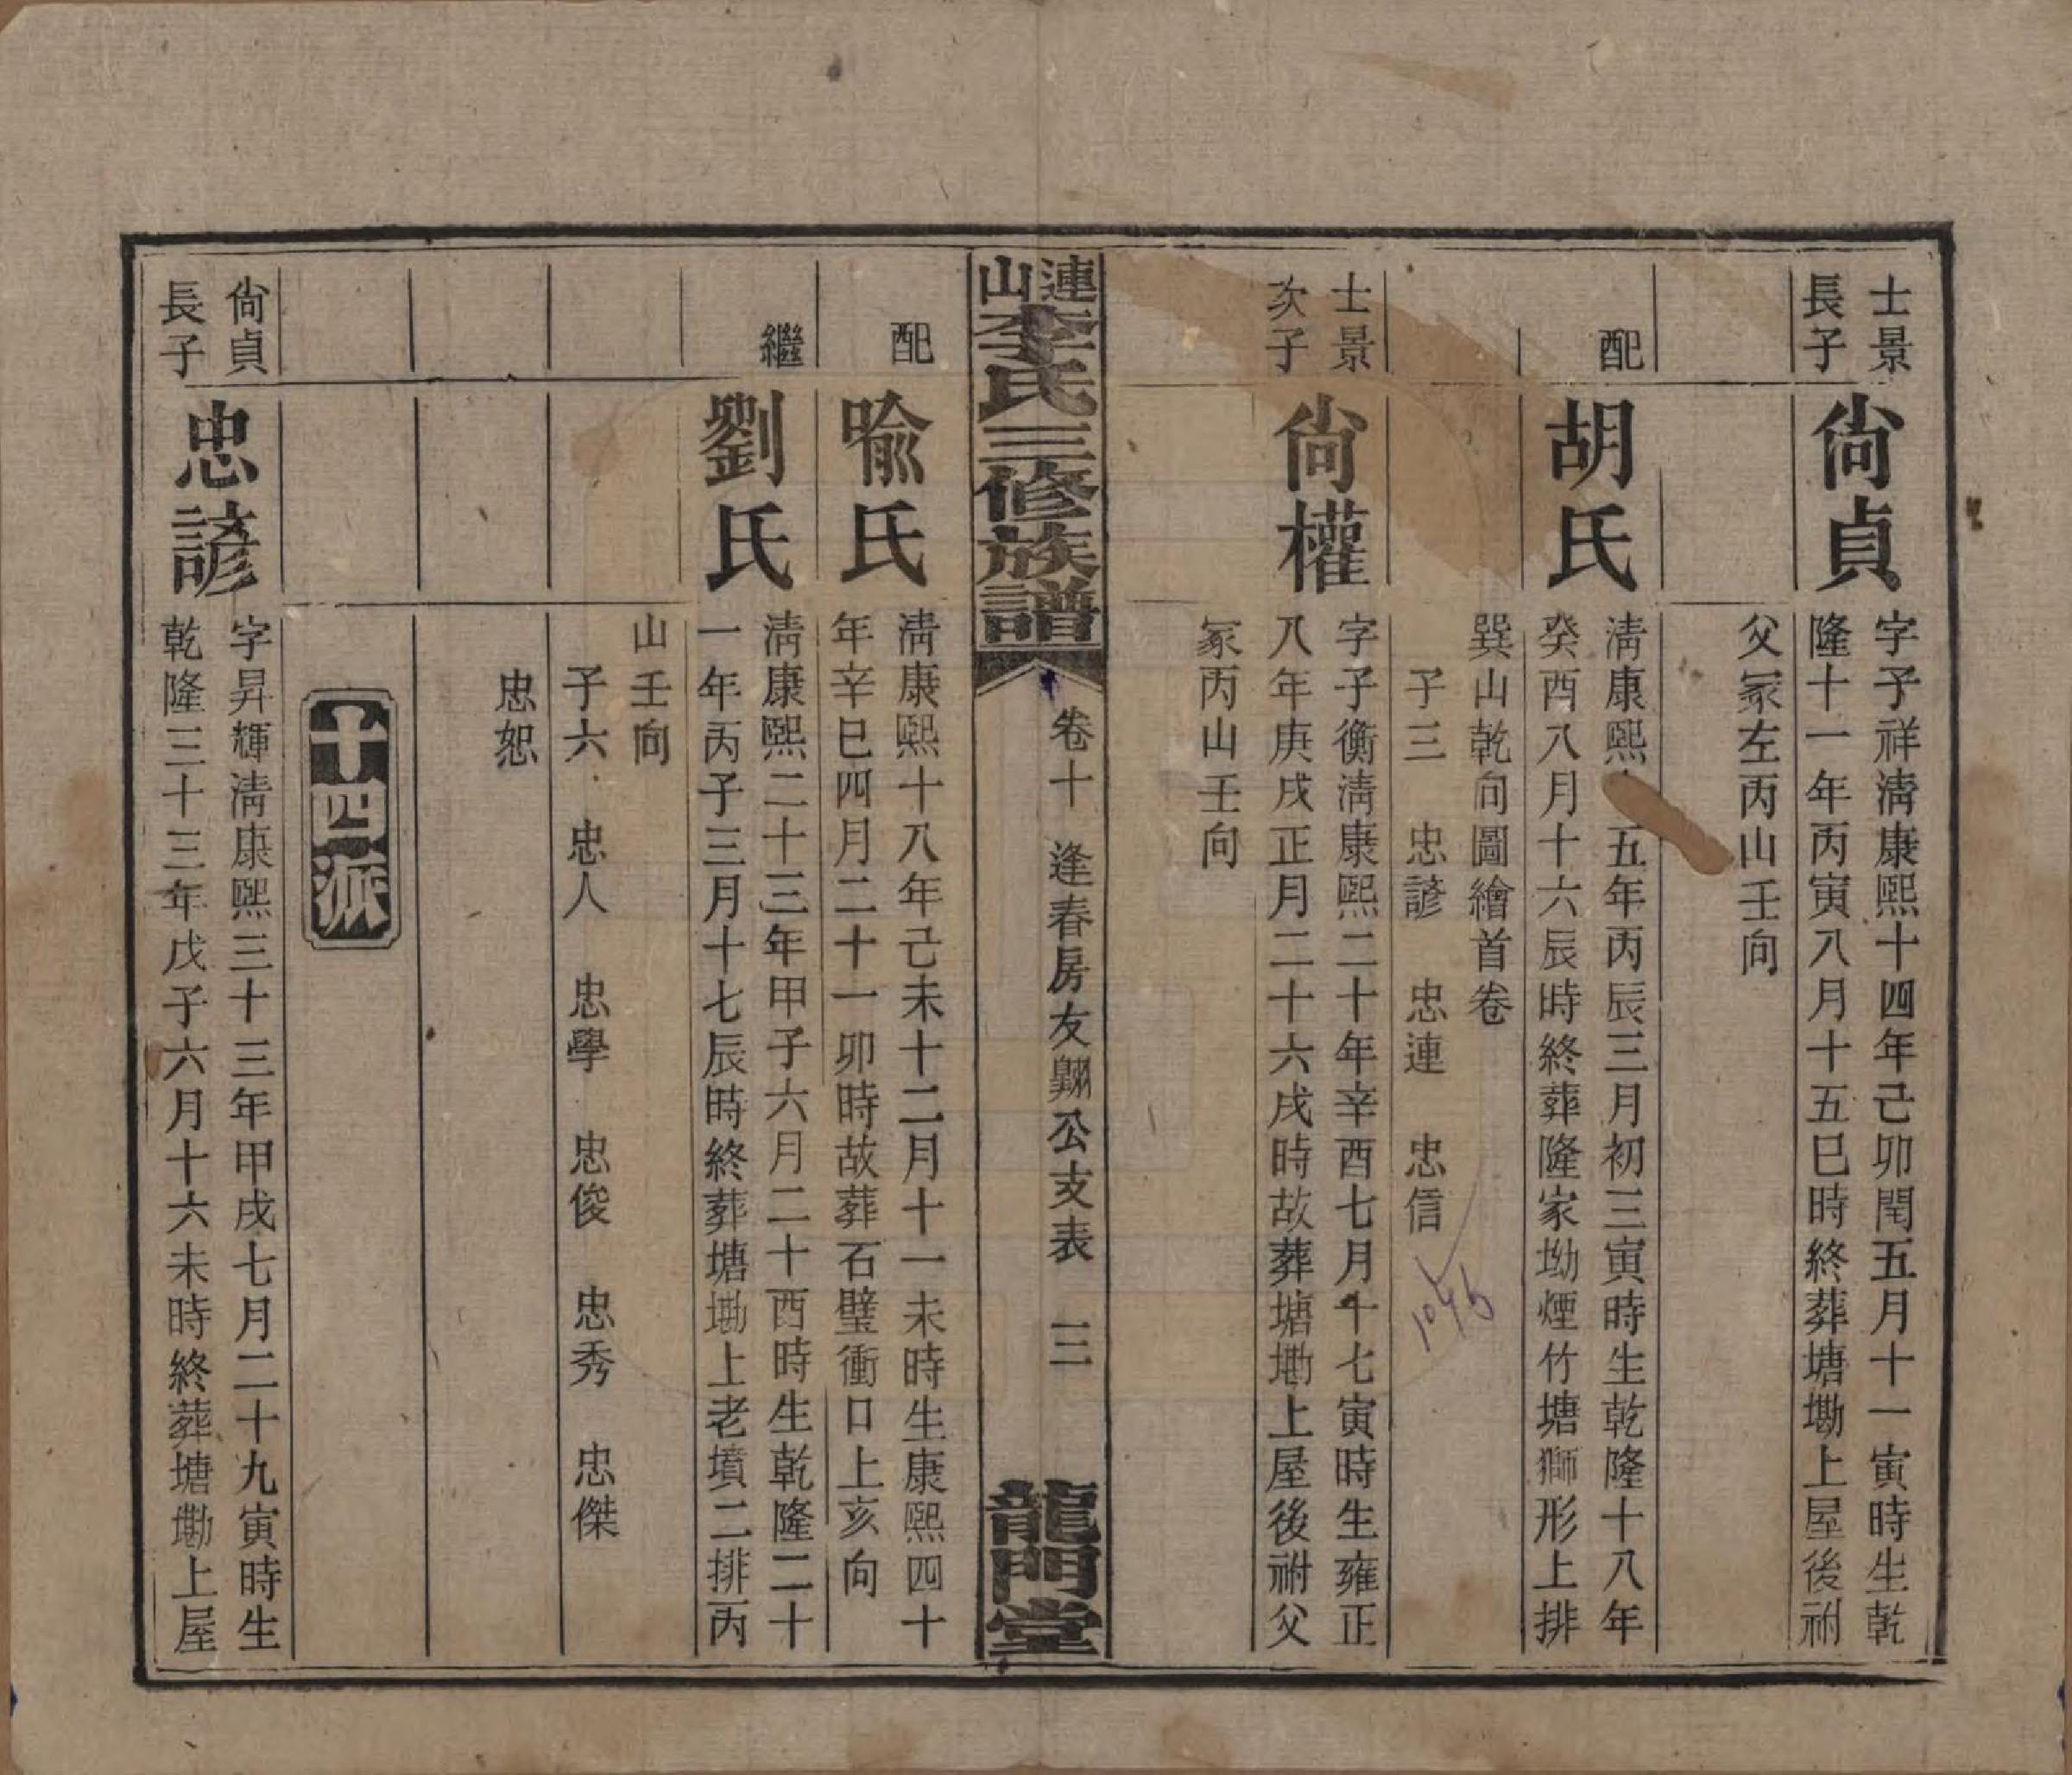 士景
長子
尙貞
字子祥淸康熙十四年己卯閏五月十一寅時生乾
隆十一年丙寅八月十五巳時終葬塘墈上屋後祔
父冢左丙山壬向
配
胡氏
淸康熙 五年丙辰三月初三寅時生乾隆十八年
癸酉八月十六辰時終葬隆家坳煙竹塘獅形上排
巽山乾向圖繪首卷
子三 忠諺 忠連 忠信
1046
士景
次子
尙權
字子衡淸康熙二十年辛酉七月十七寅時生雍正
八年庚戌正月二十六戌時故葬塘墈上屋後祔父
冢丙山壬向
連山李氏三修族譜
卷十 逢春房友翱公支表 三
龍門堂
配
喩氏
淸康熙十八年己未十二月十一未時生康熙四十
年辛巳四月二十一卯時故葬石璧衝口上亥向
繼
劉氏
淸康熙二十三年甲子六月二十酉時生乾隆二十
一年丙子三月十七辰時終葬塘墈上老墳二排丙
山壬向
子六 忠人 忠學 忠俊 忠秀 忠傑
忠恕
十四派
尙貞
長子
忠諺
字昇輝淸康熙三十三年甲戌七月二十九寅時生
乾隆三十三年戊子六月十六未時終葬塘墈上屋